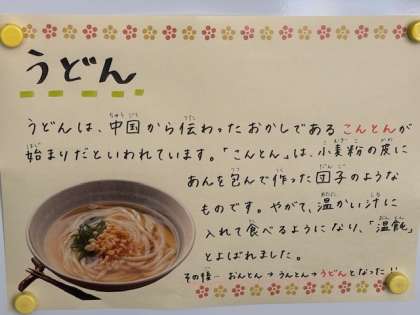 うどん
うどんは、中国から伝わったおかしであるこんとんが
始まりだといわれています。「こんとん」は、小麦粉の皮に
あんを包んで作った団子のような
ものです。やがて、温かい汁に
入れて食べるようになり、「温飩」
とよばれました。
その後… おんとん→うんとん→うどんとなった!!